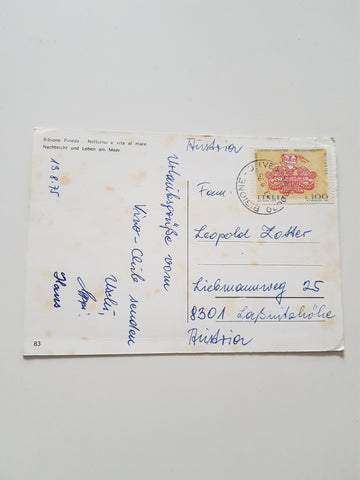 Bibione Pineda - Notturno e vita al mare
Nachtsicht und Leben am Meer
13.8.75
Urlaubsgrüße vom
Vino-Club senden
Uschi,
Hans
83
Austria
ITALIA L.100
Fam.
Leopold Zotter
Liebmannweg 25
8301 Laßnitzhöhe
Austria